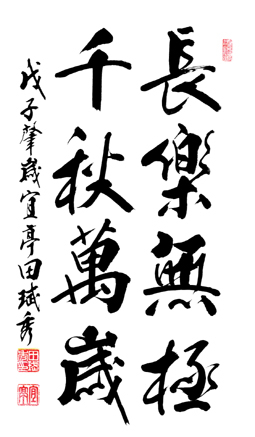 長樂無極
千秋萬歲
戊子肇歲宜亭田斌秀